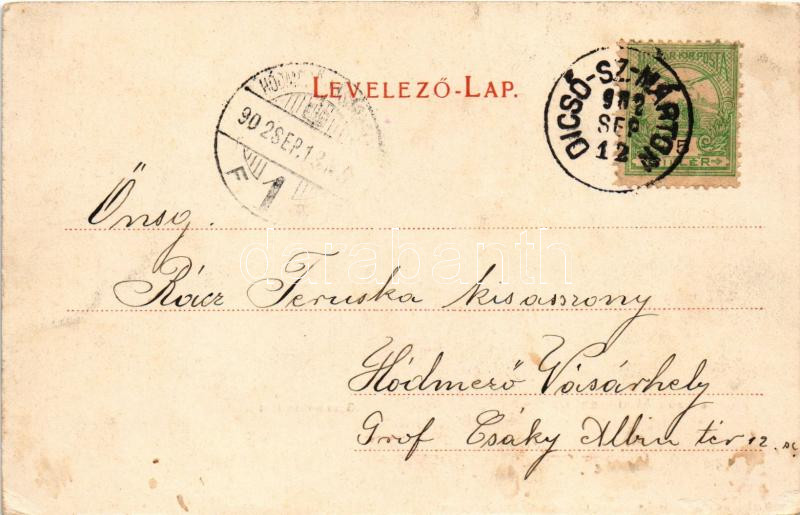 LEVELEZŐ-LAP.
MAGY. KIR. POSTA
DICSŐ-SZ-MÁRTON
902
SEP
12
5
902 SEP. 13
F 1
Önsg.
Rácz Teruska kisasszony
darabanth
Hódmező Vásárhely
Gróf Csáky Albin tér 12. sz